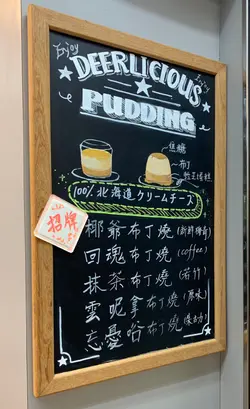 Enjoy
Enjoy
DEERLICIOUS
PUDDING
焦糖
布丁
乾玉蛋糕
100% 北海道クリームチーズ
招牌
椰爺布丁燒(新鮮椰青)
回魂布丁燒(coffee)
抹茶布丁燒(若竹)
雲呢拿布丁燒(原味)
忘憂谷布丁燒(朱古力)